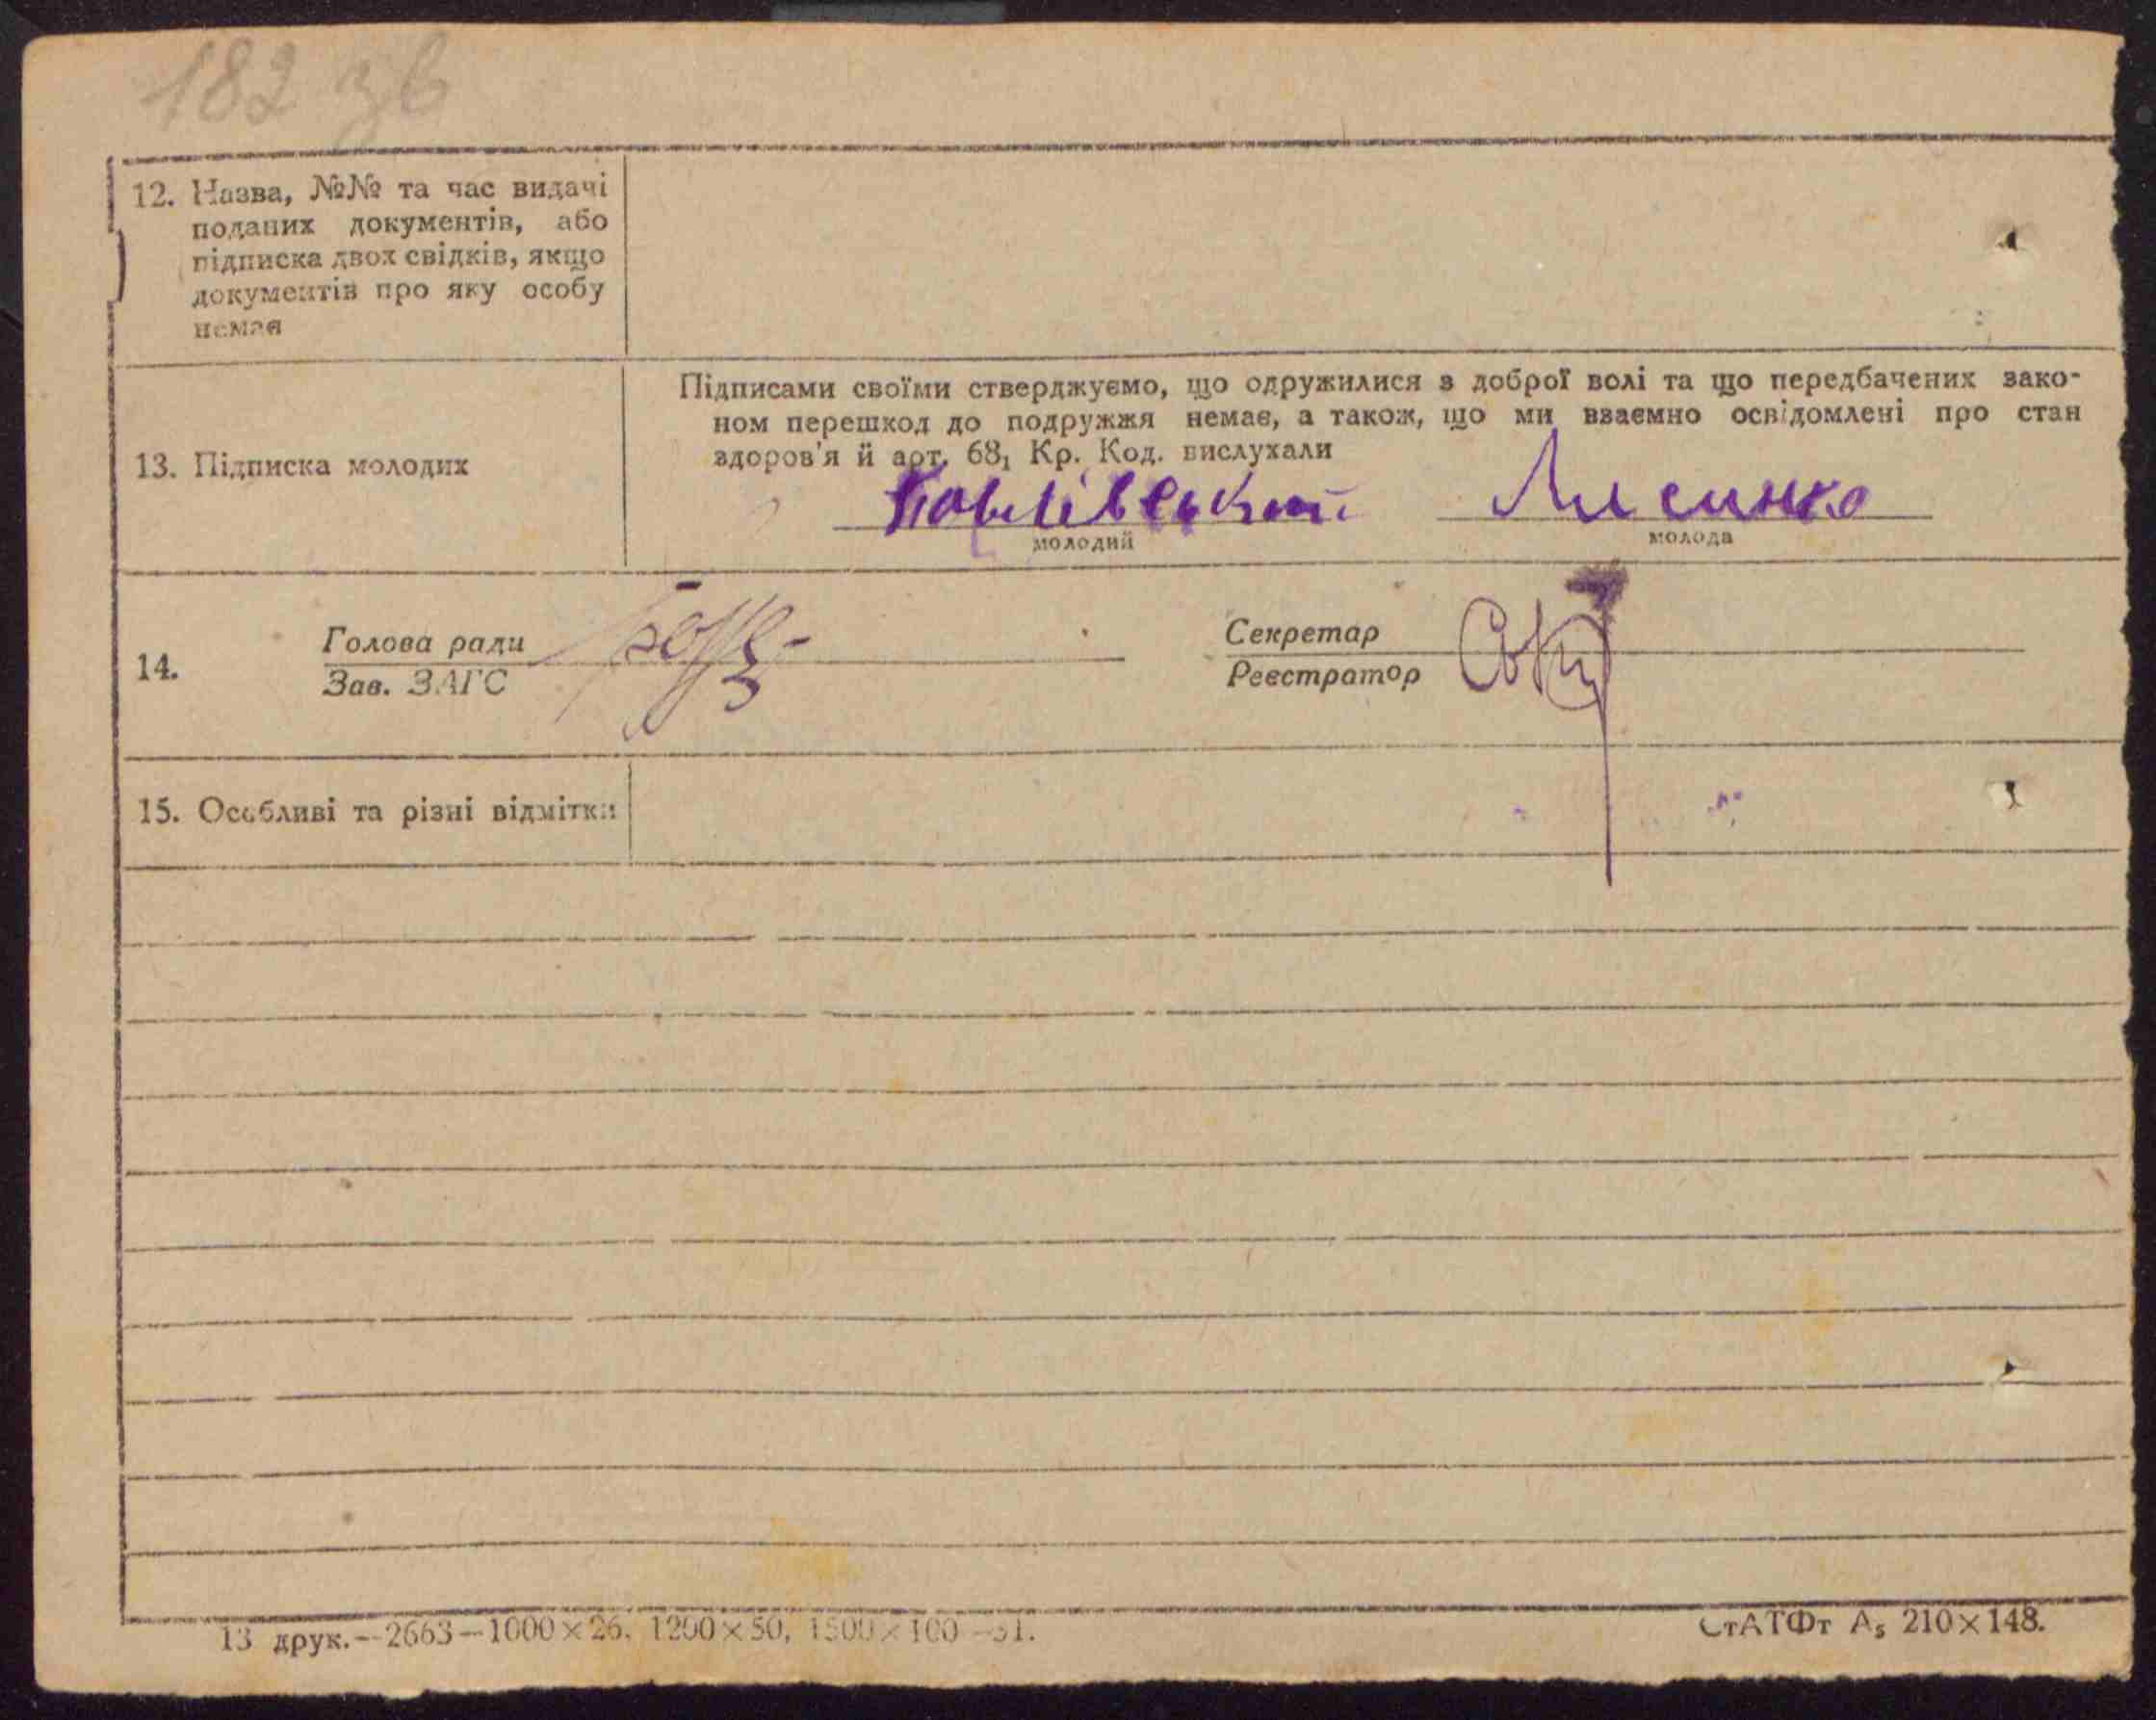 182 зв
12. Назва, №№ та час видачі
поданих документів, або
підписка двох свідків, якщо
документів про яку особу
немає
Підписами своїми стверджуємо, що одружилися з доброї волі та що передбачених зако-
ном перешкод до подружжя немає, а також, що ми взаємно освідомлені про стан
здоров'я й арт. 68₁ Кр. Код. вислухали
13. Підписка молодих
молодий
молода
14.
Голова ради
Зав. ЗАГС
Секретар
Реєстратор
15. Особливі та різні відмітки
13 друк.—2663—1000×26, 1200×50, 1500×100—31.
СтАТФт А₅ 210×148.